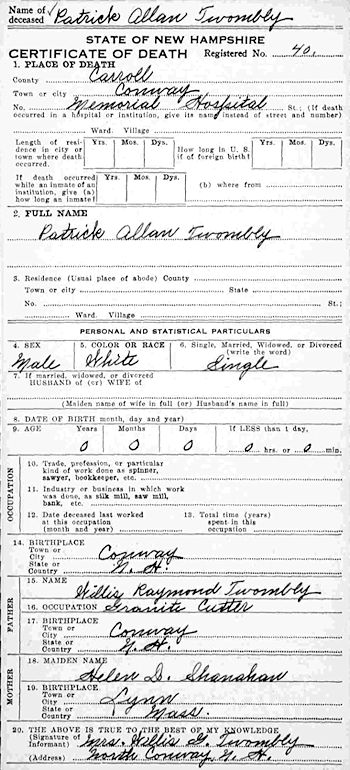 Name of deceased Patrick Allan Twombly
STATE OF NEW HAMPSHIRE
CERTIFICATE OF DEATH Registered No. 40.
1. PLACE OF DEATH
County Carroll
Town or city Conway
No. Memorial Hospital St.; (If death
occurred in a hospital or institution, give its name instead of street and number)
Ward. Village
Length of residence in city or town where death occurred. Yrs. Mos. Dys. How long in U. S. if of foreign birth? Yrs. Mos. Dys.
If death occurred while an inmate of an institution, give (a) how long an inmate? Yrs. Mos. Dys. (b) where from
2. FULL NAME
Patrick Allan Twombly
3. Residence (Usual place of abode) County
Town or city State
No. St.;
Ward. Village
PERSONAL AND STATISTICAL PARTICULARS
4. SEX 5. COLOR OR RACE 6. Single, Married, Widowed, or Divorced
(write the word)
Male White Single
7. If married, widowed, or divorced
HUSBAND of (or) WIFE of
(Maiden name of wife in full (or) Husband's name in full)
8. DATE OF BIRTH month, day and year)
9. AGE Years Months Days If LESS than 1 day,
0 0 0 0 hrs. or 0 min.
OCCUPATION
10. Trade, profession, or particular
kind of work done as spinner,
sawyer, bookkeeper, etc.
11. Industry or business in which work
was done, as silk mill, saw mill,
bank, etc.
12. Date deceased last worked at this occupation (month and year)
13. Total time (years) spent in this occupation
14. BIRTHPLACE
Town or City Conway
State or Country N. H.
FATHER
15. NAME
Willis Raymond Twombly
16. OCCUPATION Granite Cutter
17. BIRTHPLACE
Town or City Conway
State or Country N. H.
MOTHER
18. MAIDEN NAME
Helen D. Shanahan
19. BIRTHPLACE
Town or City Lynn
State or Country Mass.
20. THE ABOVE IS TRUE TO THE BEST OF MY KNOWLEDGE
(Signature of Informant) Mrs. Willis G. Twombly
(Address) North Conway N. H.